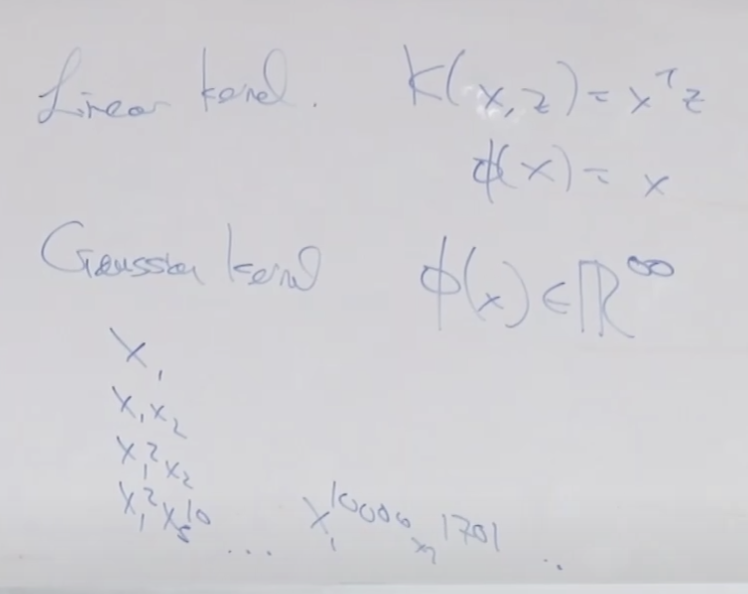 Linear kernel. K(x,z) = xᵀz
ϕ(x) = x
Gaussian kernel ϕ(x) ∈ ℝ^∞
x₁
x₁x₂
x₁²x₂
x₁²x₅¹⁰ ... x₁¹⁰⁰⁰⁰ x₇¹⁷⁰¹ ..